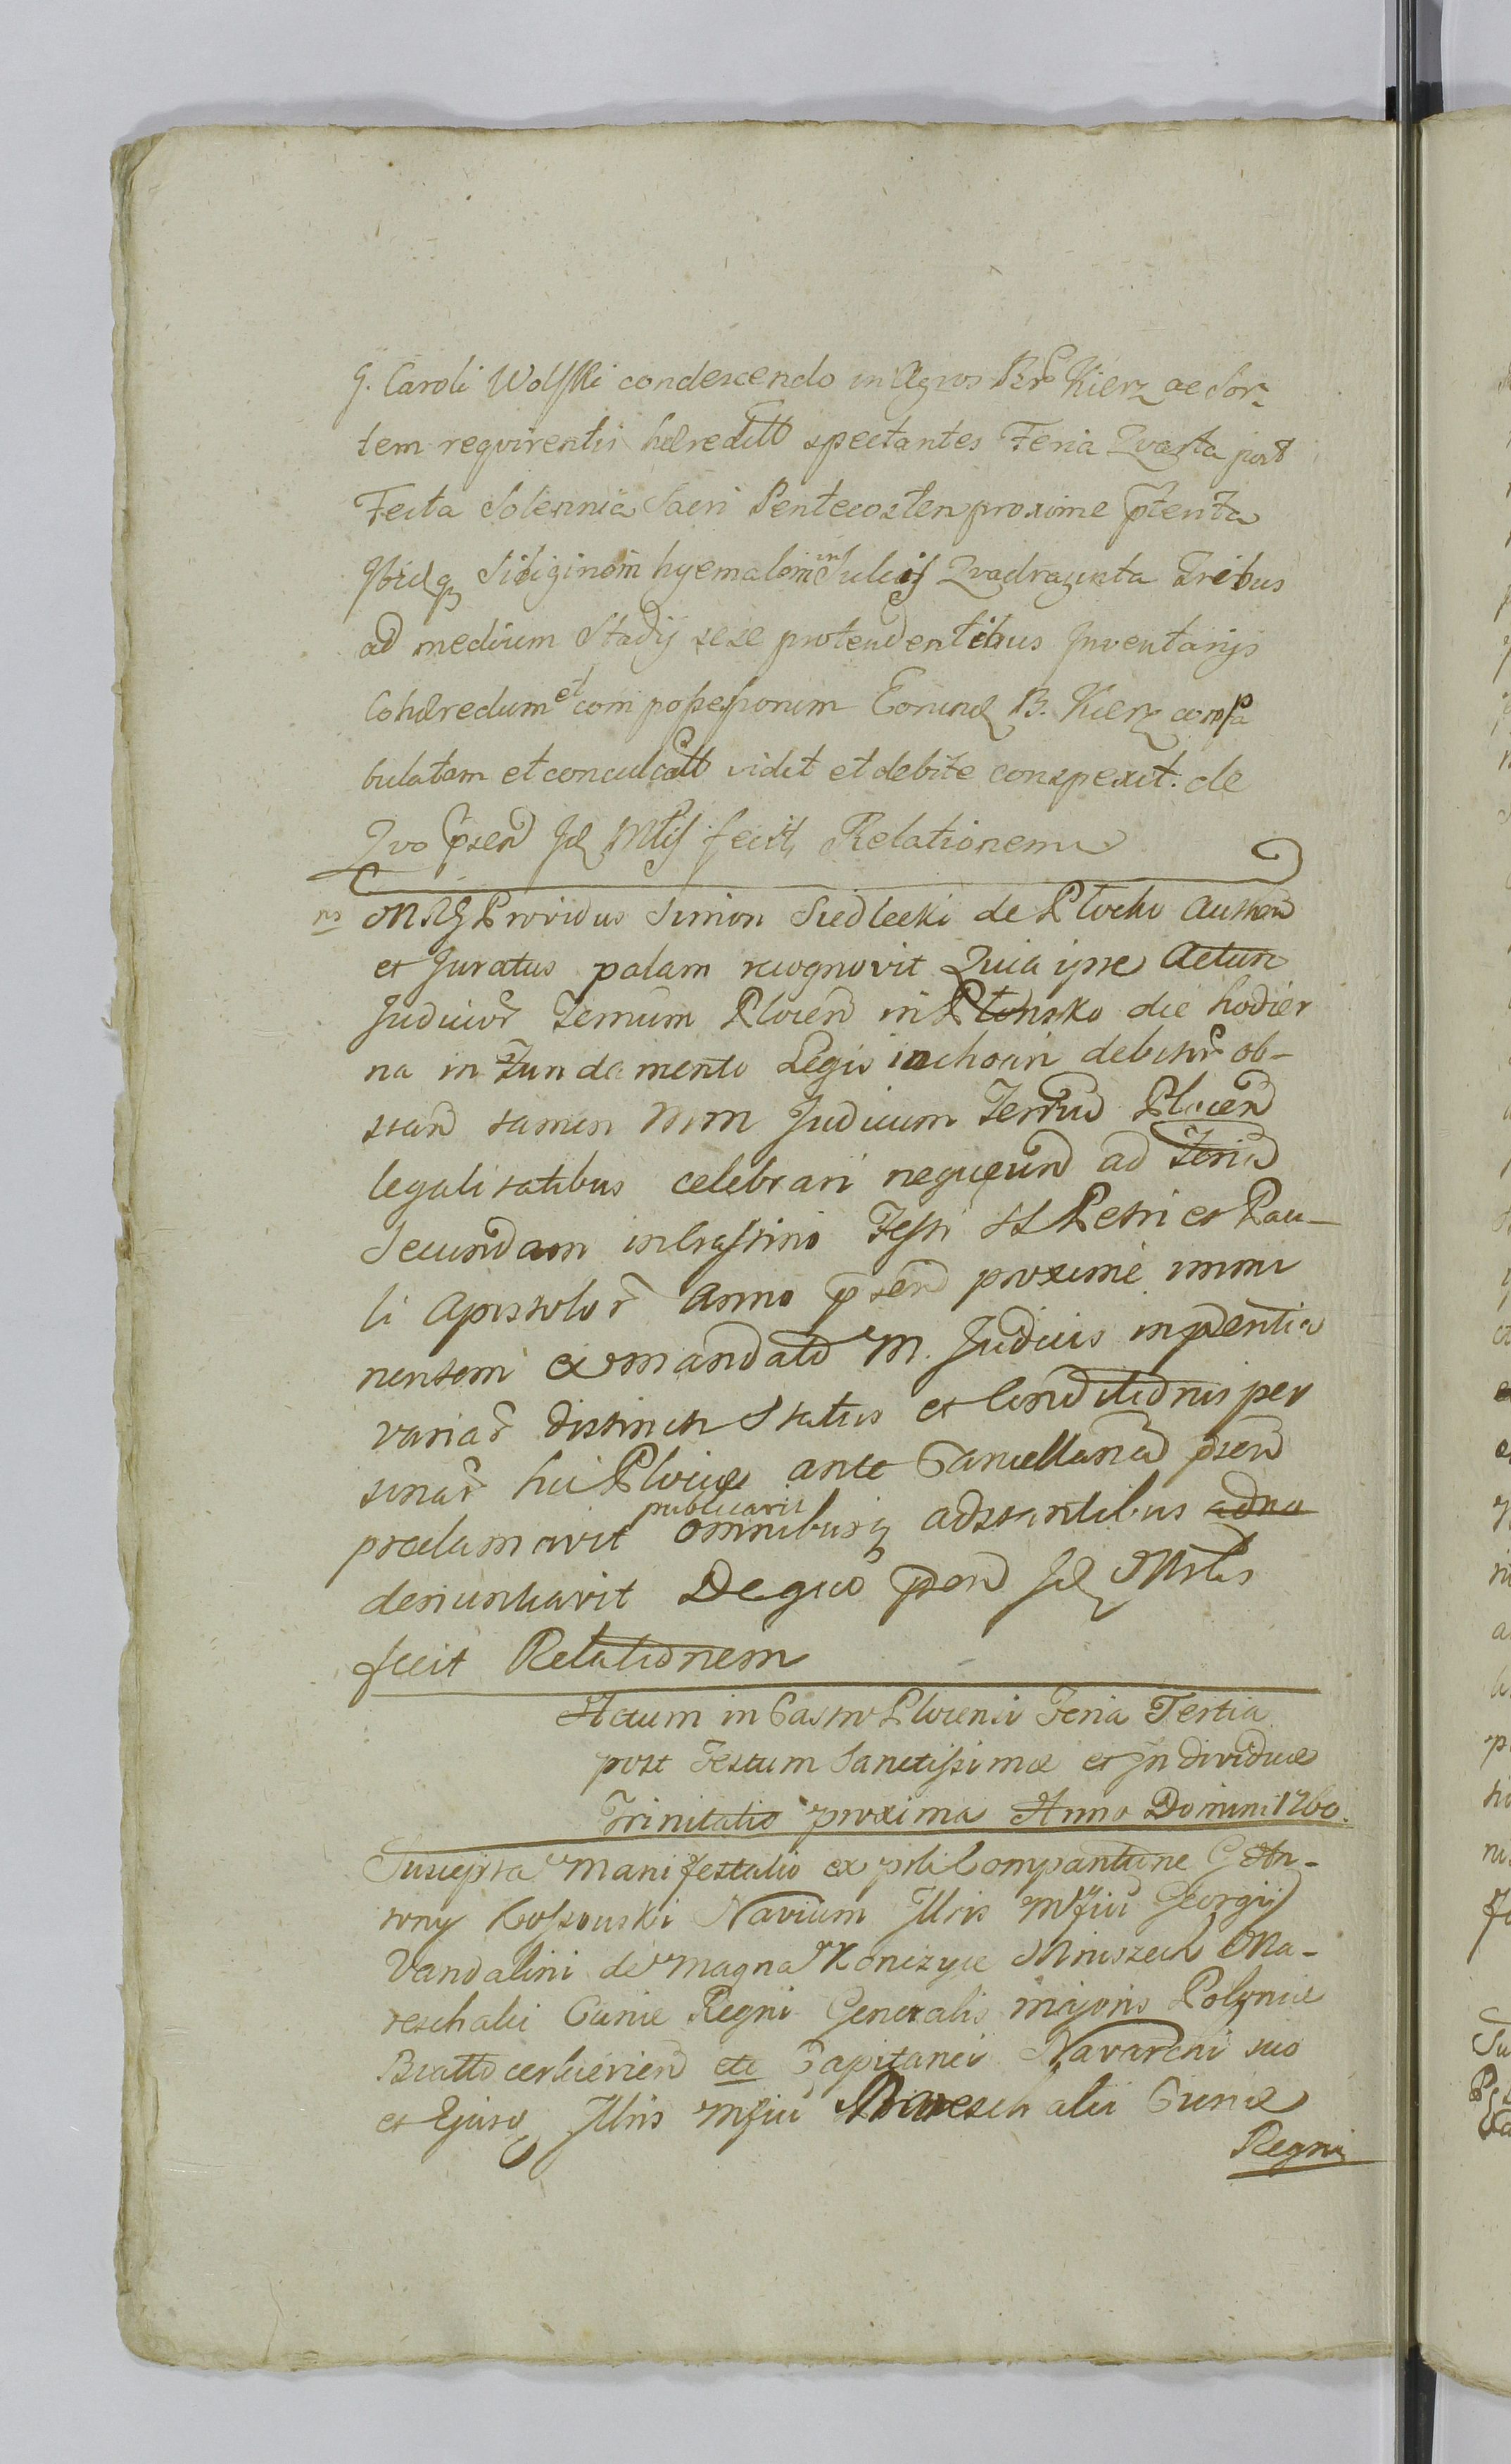 G. Caroli Wolski condescendo in Agros Br̃ Kierz ac Sor-
tem requirentis hæreditt spectantes Feria Quarta post
Festa Solennia Sacri Pentecosten proxime pterita
ibidq Siliginem hyemalem in Sulcis Quadraginta Tribus
ad medium Stadij sese protendentibus Inventarijs
Cohæredum et compossessorum Eorund B. Kierz compa
bulatam et conculcatt vidit et debite conspexit. de
Quo psen Jd Mtis fecit Relationem
ns MRG Providus Simon Siedlecki de Plocko Authen
et Juratus palam recognovit Quia ipse Actum
Judicior Terrium Plocen in Plonsko die hodier
na in Fundamento Legis inchoari debitur ob-
stan tamen Mm Judicum Terriu Plocen
legalitatibus celebrari nequeun ad Feria
Secundam in Crastino Festi SS Petri et Pau-
li Apostolor Anno psen proxime immi
nentem ex mandato M. Judicis in psentia
variar distincti Status et Conditionis per
sonar hic Plociæ ante Cancellaria psen
proclamavit publicavit omnibusq adstantibus adno
denuntiavit De quo psen Jd Mtis
fecit Relationem
Actum in Castro Plocensi Feria Tertia
post Festum Sanctissimæ et Individuæ
Trinitatis proxima Anno Domini 1760.
Suscepta Manifestatio ex psli Comparitune G An-
tony Kossowski Navium Illris Mfici Georgij
Vandalini de Magna Konczyce Mniszech Ma-
reschalci Curiæ Regni Generalis majoris Poloniæ
et Ejusd Illris Mfici Mareschalci Curiæ
Regni